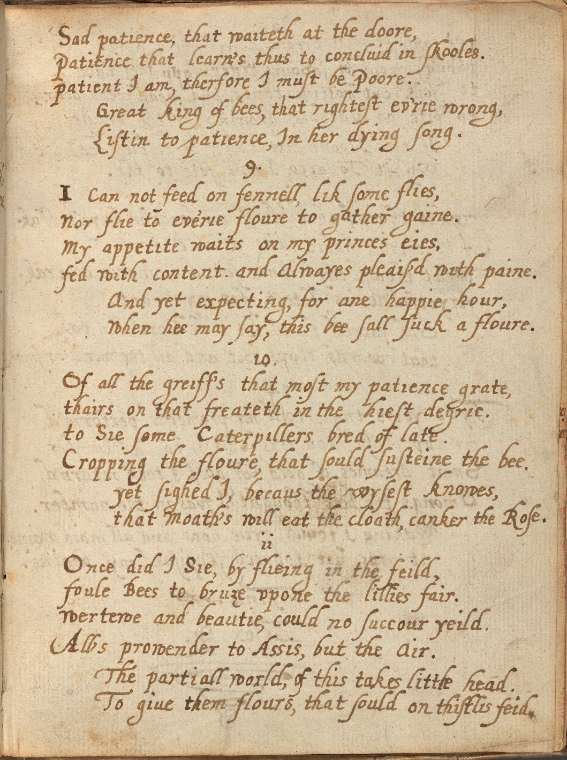 Sad patience, that waiteth at the doore,
Patience that learn's thus to concluid in skooles.
patient I am, therfore I must be Poore.
Great king of bees, that rightest ev'rie wrong,
Listin to patience, In her dying song.
9.
I Can not feed on fennell, lik some flies,
Nor flie to everie floure to gather gaine.
My appetite waits on my princes eies,
fed with content. and Alwayes pleaisd with paine.
And yet expecting, for ane happie hour,
When hee may say, this bee sall suck a floure.
10
Of all the greiff's that most my patience grate,
thairs on that freateth in the hiest degrie.
to Sie some Caterpillers bred of late.
Cropping the floure, that sould susteine the bee.
yet sighed I, becaus the wysest knowes,
that moath's will eat the cloath, canker the Rose.
ii
Once did I Sie, by flieing in the feild,
foule Bees to bruze vpone the lillies fair.
wertewe and beautie, could no succour yeild.
Alls prowender to Assis, but the air.
The partiall world, of this takes little head.
To give them flours, that sould on thistlis feid.